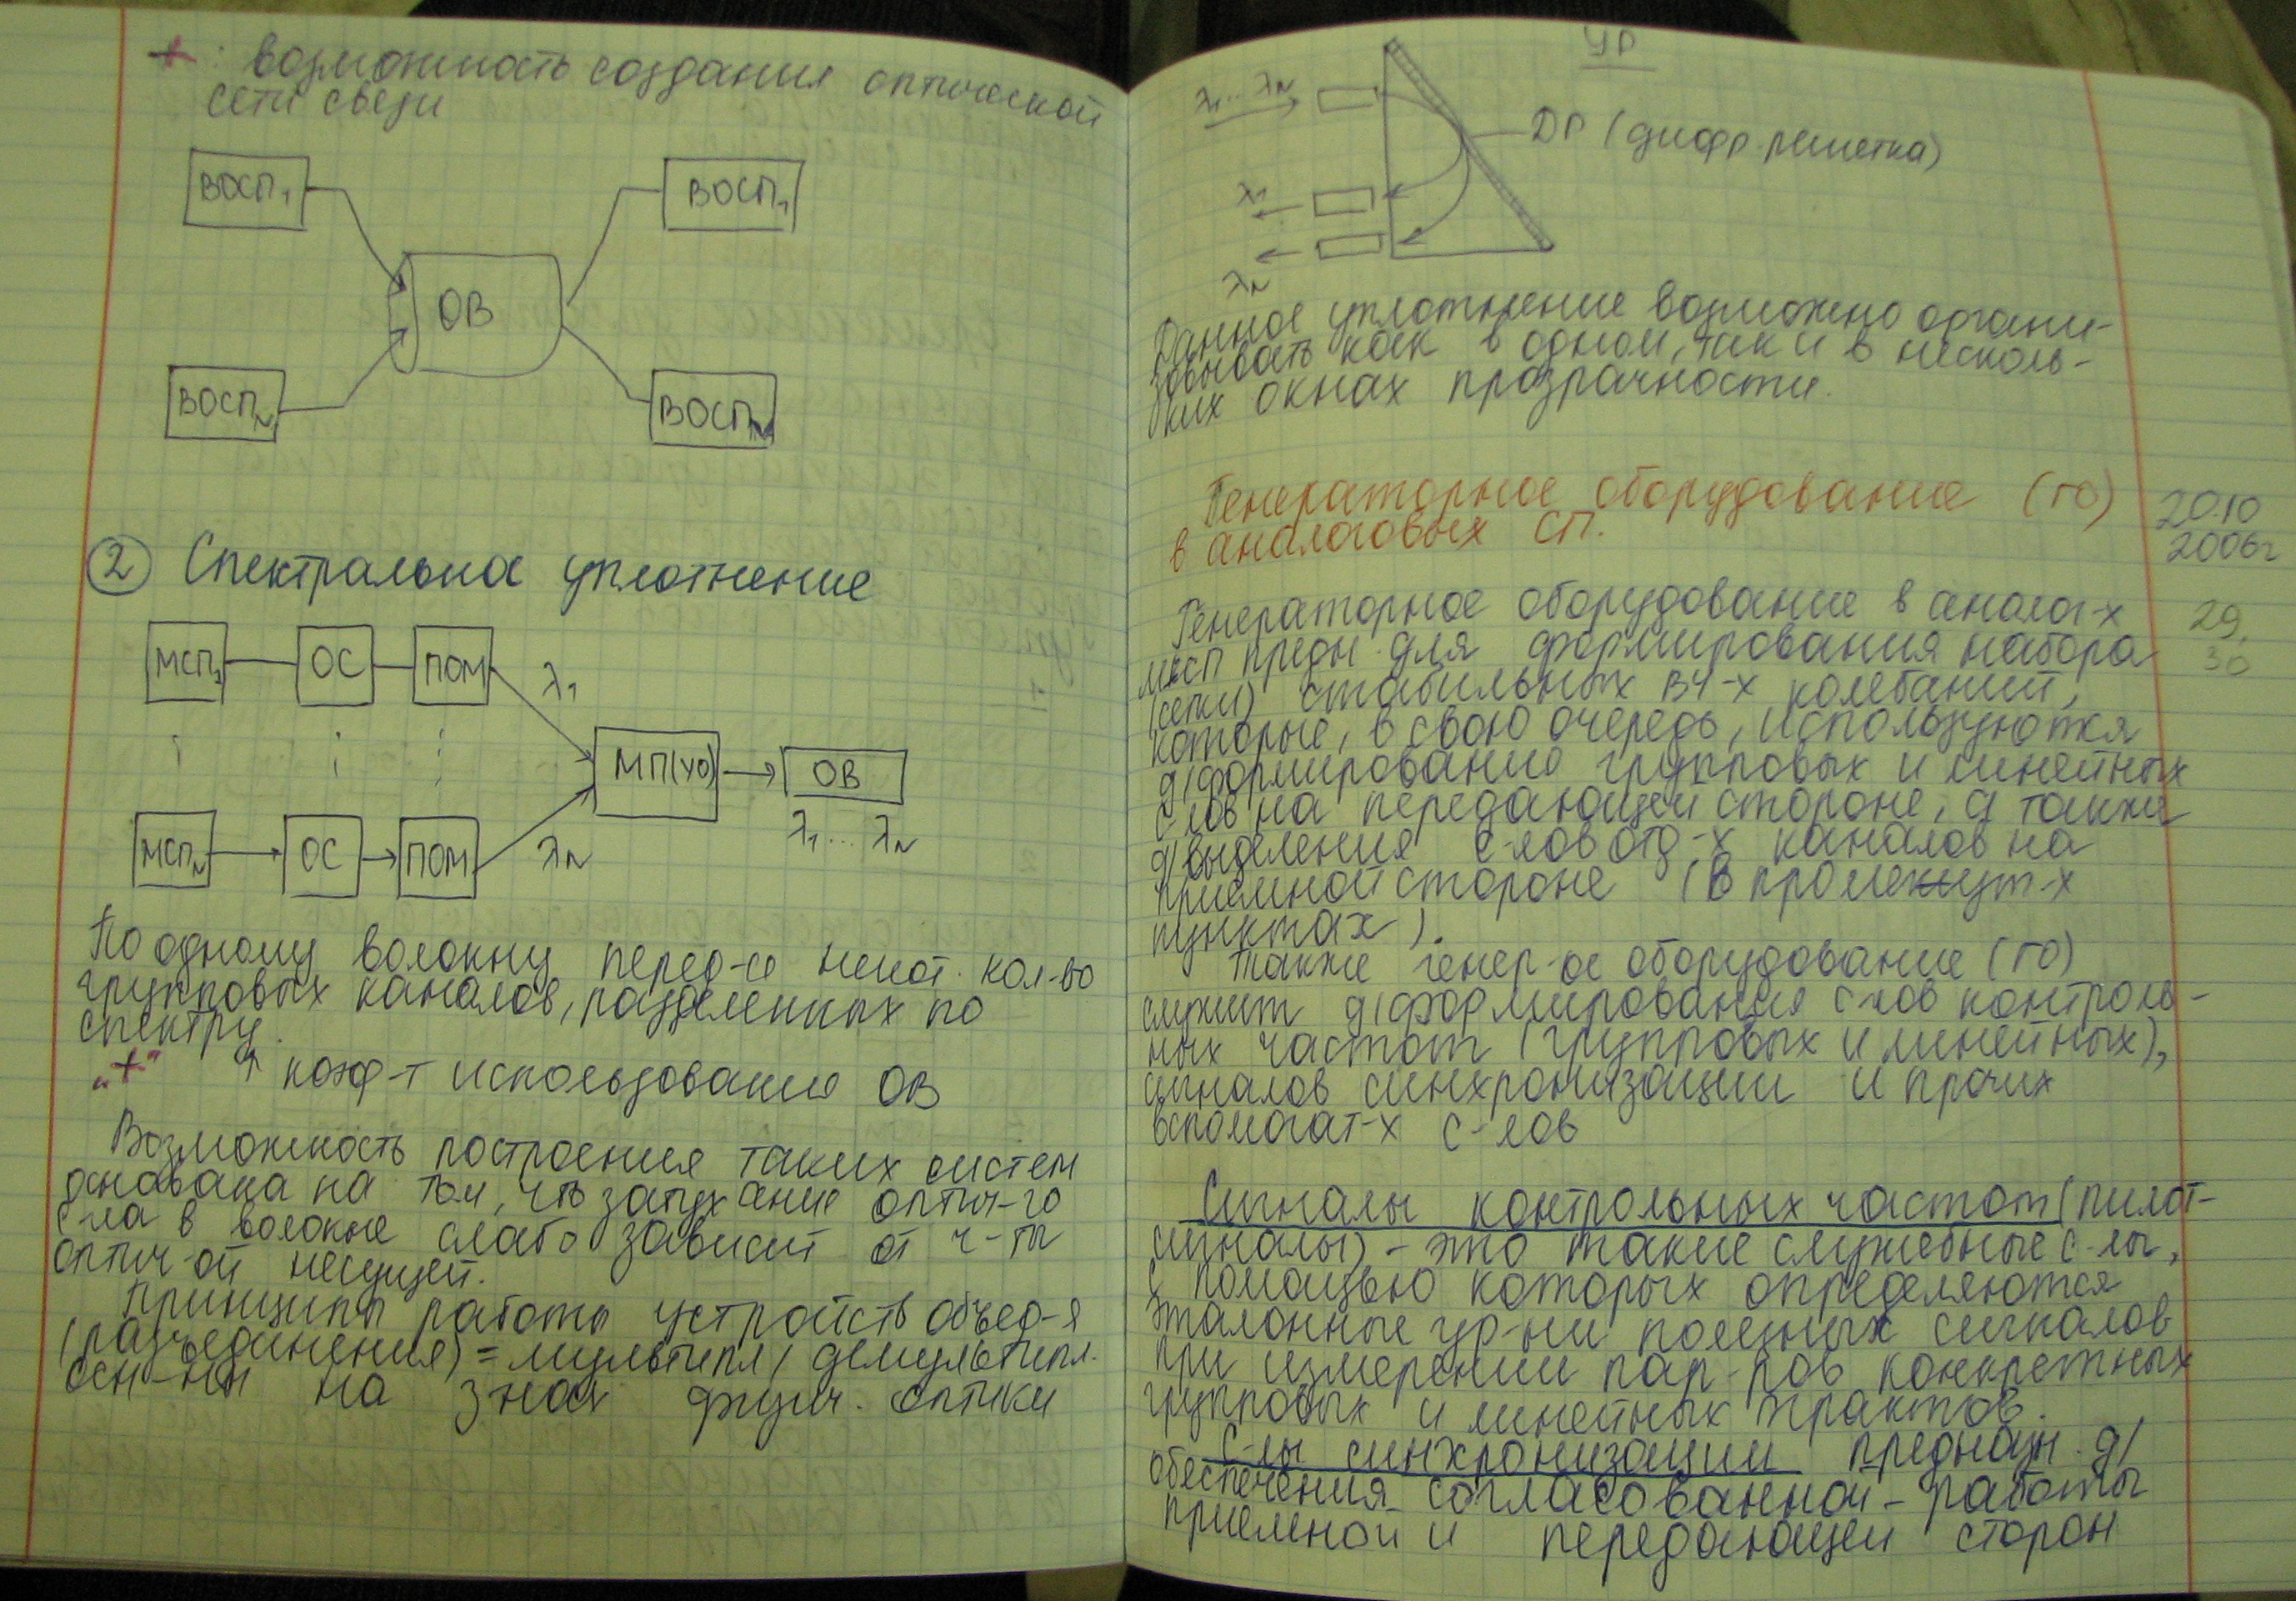 + : возможность создания оптической
сети связи
ВОСП₁
ВОСП₁
ОВ
ВОСПN
ВОСПN
② Спектральное уплотнение
МСП₁
ОС
ПОМ
λ₁
МП(УО)
ОВ
λ₁... λN
МСПN
ОС
ПОМ
λN
По одному волокну перед-ся некот. кол-во
групповых каналов, разделенных по
спектру.
„+" ↑ коэф-т использование ОВ
Возможность построения таких систем
основана на том, что затухание оптич-го
с-ла в волокне слабо зависит от ч-ты
оптич-ой несущей.
Принципы работы устройств объед-я
(разъединения) = мультипл/ демультипл.
осн-ны на з-нах физич. оптики
УР
λ₁... λN
ДР (дифр. решетка)
λ₁
λN
Данное уплотнение возможно органи-
зовывать как в одном, так и в несколь-
ких окнах прозрачности.
Генераторное оборудование (ГО)
в аналоговых СП.
20.10
2006г
Генераторное оборудование в аналог-х
29,
МСП предн. для формирования набора
30
(сетки) стабильных ВЧ-х колебаний,
которые, в свою очередь, используются
д/формирование групповых и линейных
с-лов на передающей стороне, а также
д/выделения с-лов отд-х каналов на
приемной стороне (в промежут-х
пунктах).
Также генер-ое оборудование (ГО)
служит д/формирования с-лов контроль-
ных частот (групповых и линейных),
сигналов синхронизации и прочих
вспомогат-х с-лов
Сигналы контрольных частот (пилот-
сигналы) - это такие служебные с-лы,
с помощью которых определяются
эталонные ур-ни полезных сигналов
при измерении пар-ров конкретных
групповых и линейных трактов.
С-лы синхронизации предназн. д/
обеспечения согласованной работы
приемной и передающей сторон